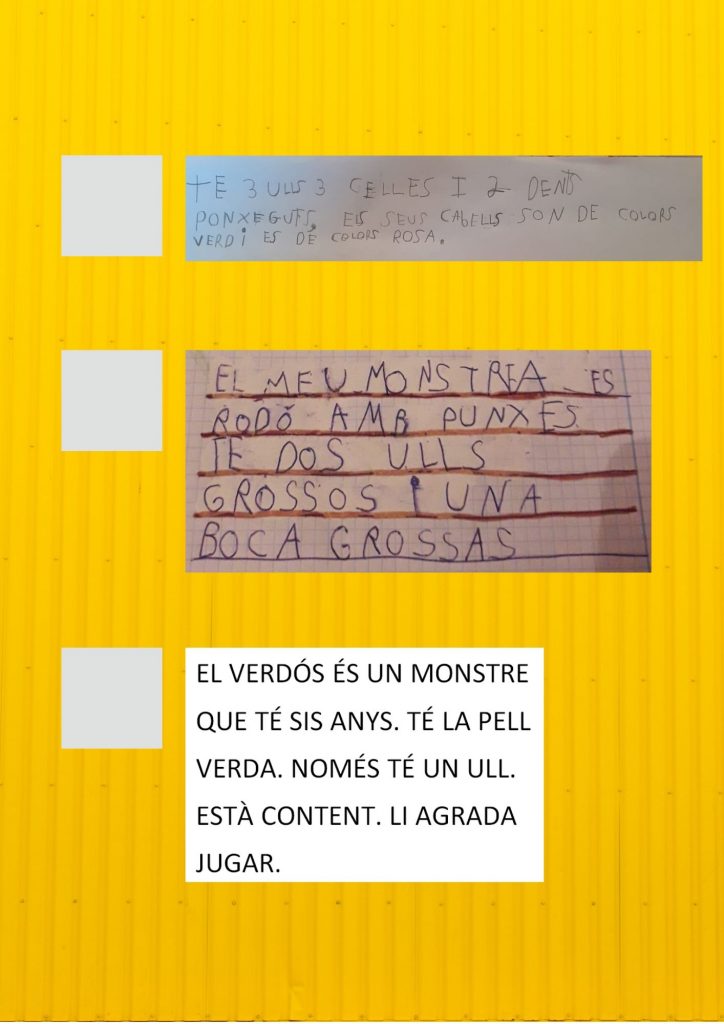 TE 3 ULLS 3 CELLES I 2 DENTS
PONXEGUTS. ELS SEUS CABELLS SON DE COLORS
VERD I ES DE COLORS ROSA.
EL MEU MONSTREA ES
RODÓ AMB PUNXES
TE DOS ULLS
GROSSOS I UNA
BOCA GROSSAS
EL VERDÓS ÉS UN MONSTRE
QUE TÉ SIS ANYS. TÉ LA PELL
VERDA. NOMÉS TÉ UN ULL.
ESTÀ CONTENT. LI AGRADA
JUGAR.